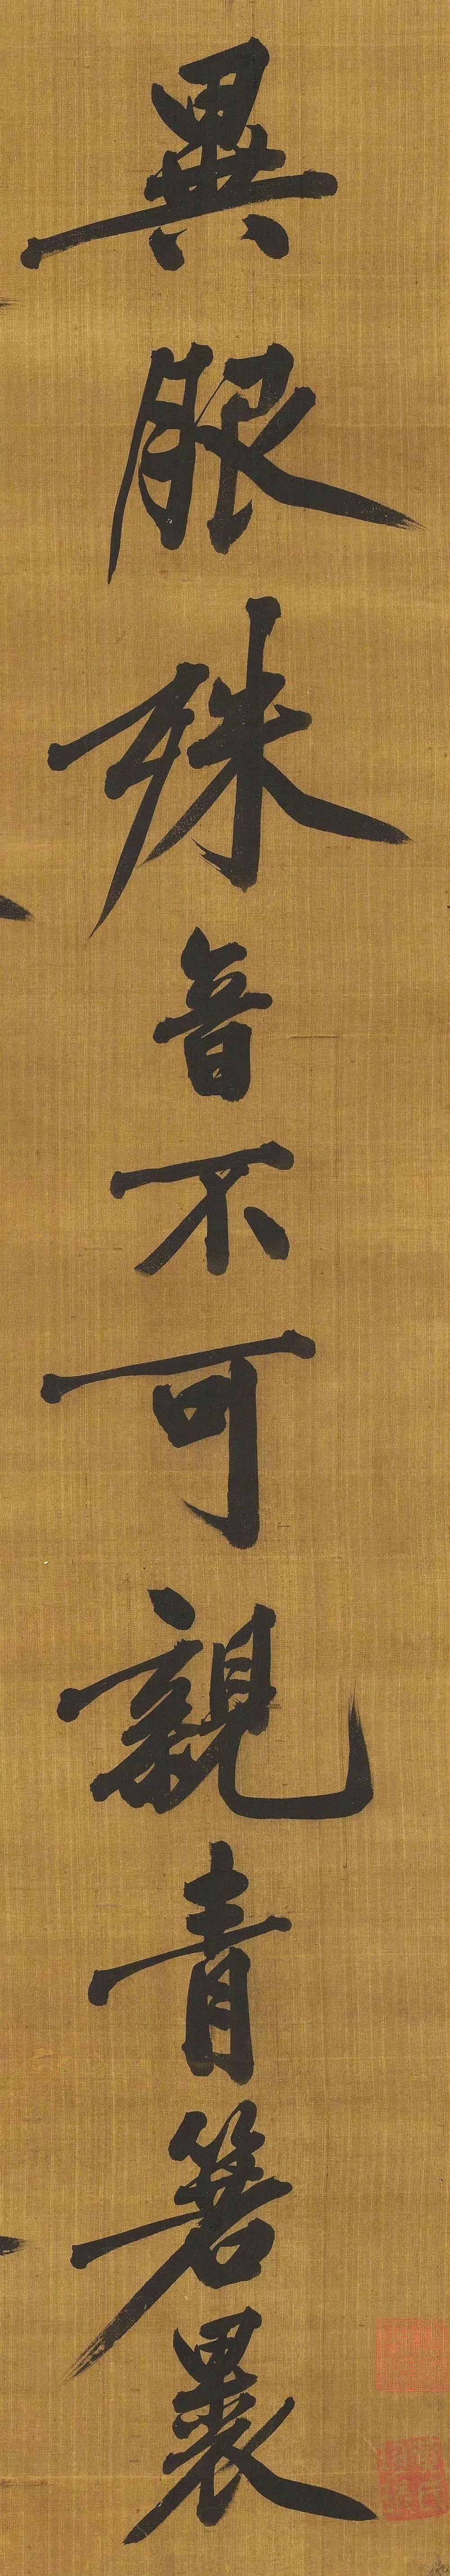 異服殊音不可親青箬裹